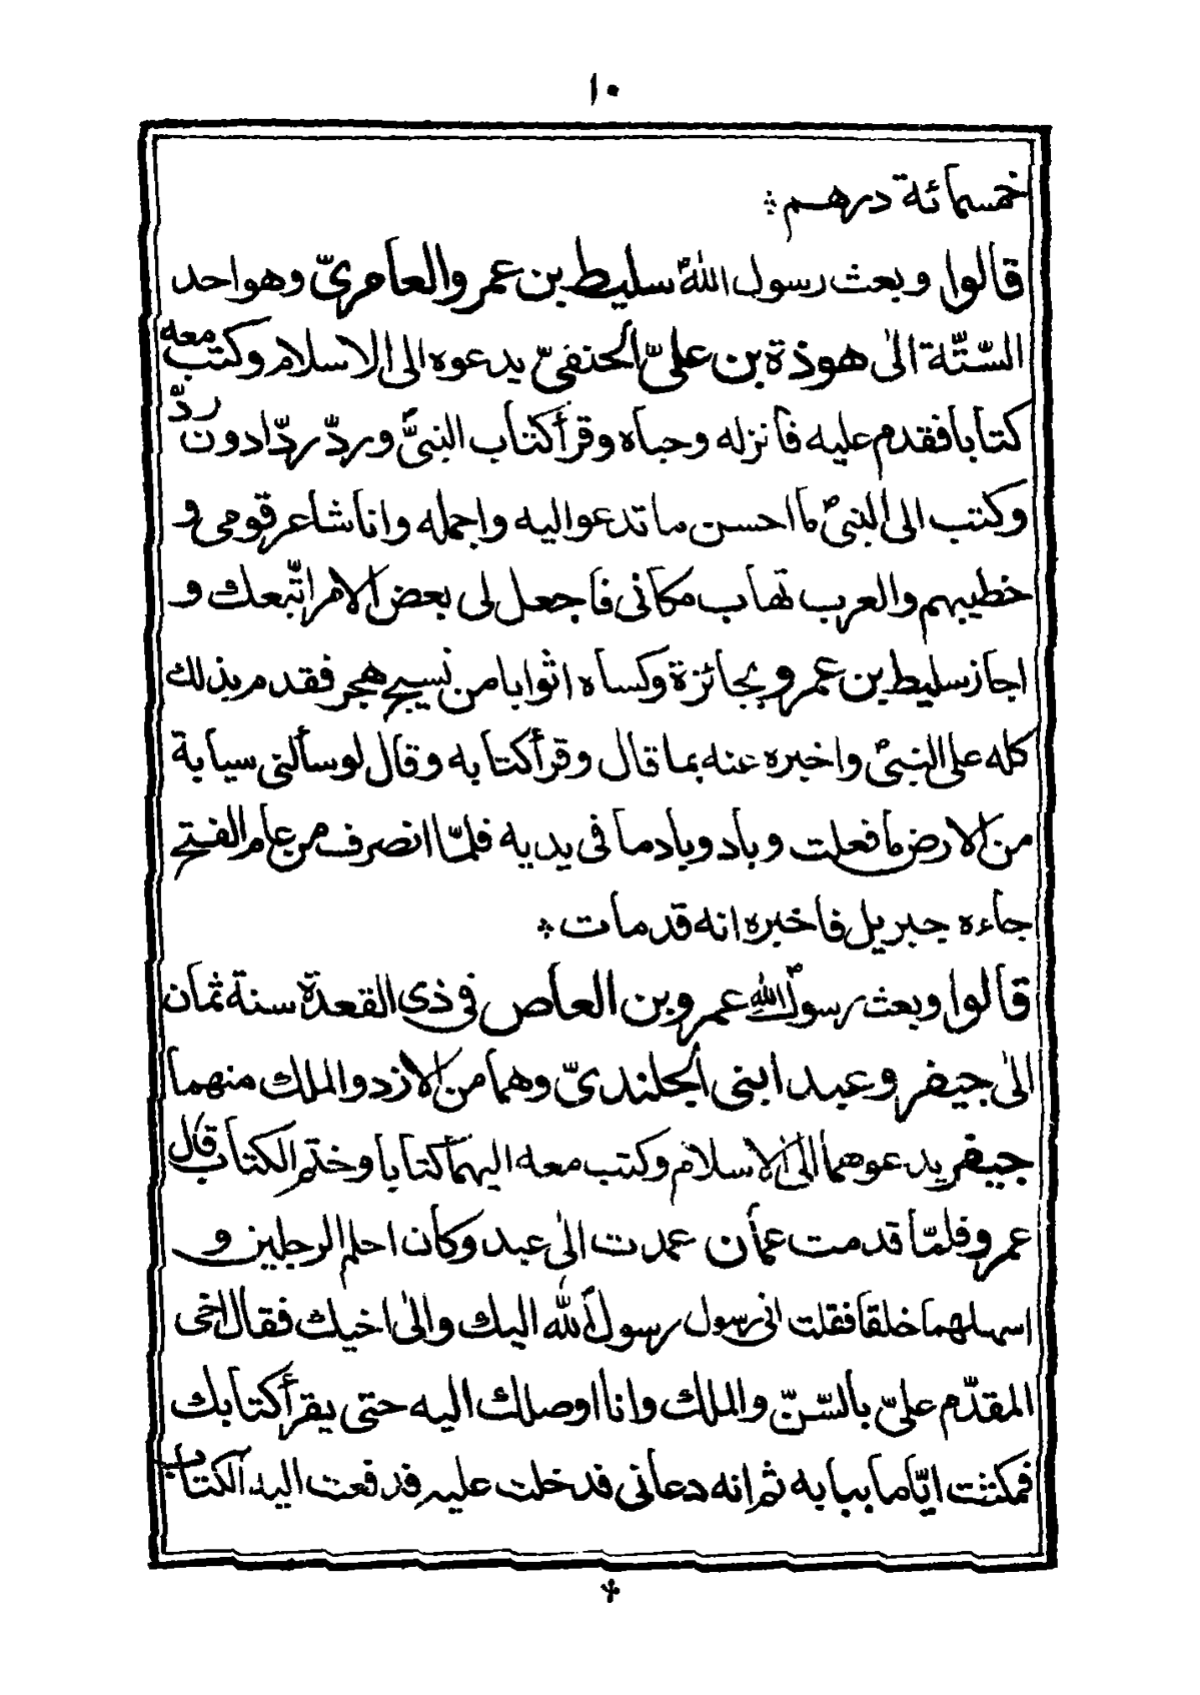 ١٠
خمسمائة درهم؞
قالوا وبعث رسول اللهؐ سليط بن عمرو العامريّ وهو احد
السّتّة الىٰ هوذة بن علىّ الحنفىّ يدعوه الى الاسلام وكتب معه
كتابا فقدم عليه فانزله وحباه وقرأ كتاب النبىّؐ وردّ ردّا دون ردّ
وكتب الى النبىؐ ما احسن ما تدعو اليه واجمله وانا شاعر قومى و
خطيبهم والعرب تهاب مكانى فاجعل لى بعض الامر اتّبعك و
اجاز سليط بن عمرو بجائزة وكساه اثوابا من نسيج هجر فقدم بذلك
كله على النبىؐ واخبره عنه بما قال وقرأ كتابه وقال لو سألنى سيابة
من الارض ما فعلت وباد وباد ما فى يديه فلمّا انصرف من عام الفتح
جاءه جبريل فاخبره انه قد مات ؞
قالوا وبعث رسول اللهؐ عمرو بن العاص فى ذى القعدة سنة ثمان
الىٰ جيفر وعبد ابنى الجلندىّ وهما من الازد والملك منهما
جيفر يدعوهما الى الاسلام وكتب معه اليهما كتابا وختم الكتاب قال
عمرو فلمّا قدمت عمان عمدت الىٰ عبد وكان احلم الرجلين و
اسهلهما خلقا فقلت انى رسول رسول الله اليك والىٰ اخيك فقال اخى
المقدّم علىّ بالسّنّ والملك وانا اوصلك اليه حتى يقرأ كتابك
فمكثت ايّاما ببابه ثم انه دعانى فدخلت عليه فدفعت اليه الكتاب